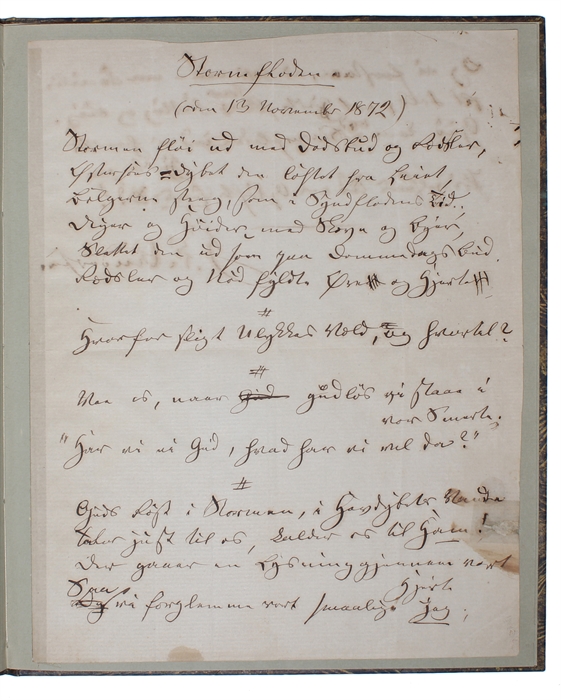 Stormfloden
(den 13 November 1872)
Stormen fløi ud med Dødsbud og Rædsler,
Østersøs=Dybet den løftet fra Leiet,
Bølgerne steeg, som i Syndflodens Tid.
Diger og Huse med Skove og Byer,
Slettet den ud som paa Dommedags Bud.
Rædsler og Nød fyldte Øre og Hjerte
Hvorfor sligt Ulykkes Væld, og hvortil?
Vee os, naar gudløs vi staae i
vor Smerte;
"Har vi ei Gud, hvad har vi vel da?"
Guds Røst i Stormen, i Havdybets Vande
taler just til os, kalder os til Ham!
Der gaaer en Lysning gjennem vort
Hjerte
Saa vi forglemme vort smaalige Jeg;